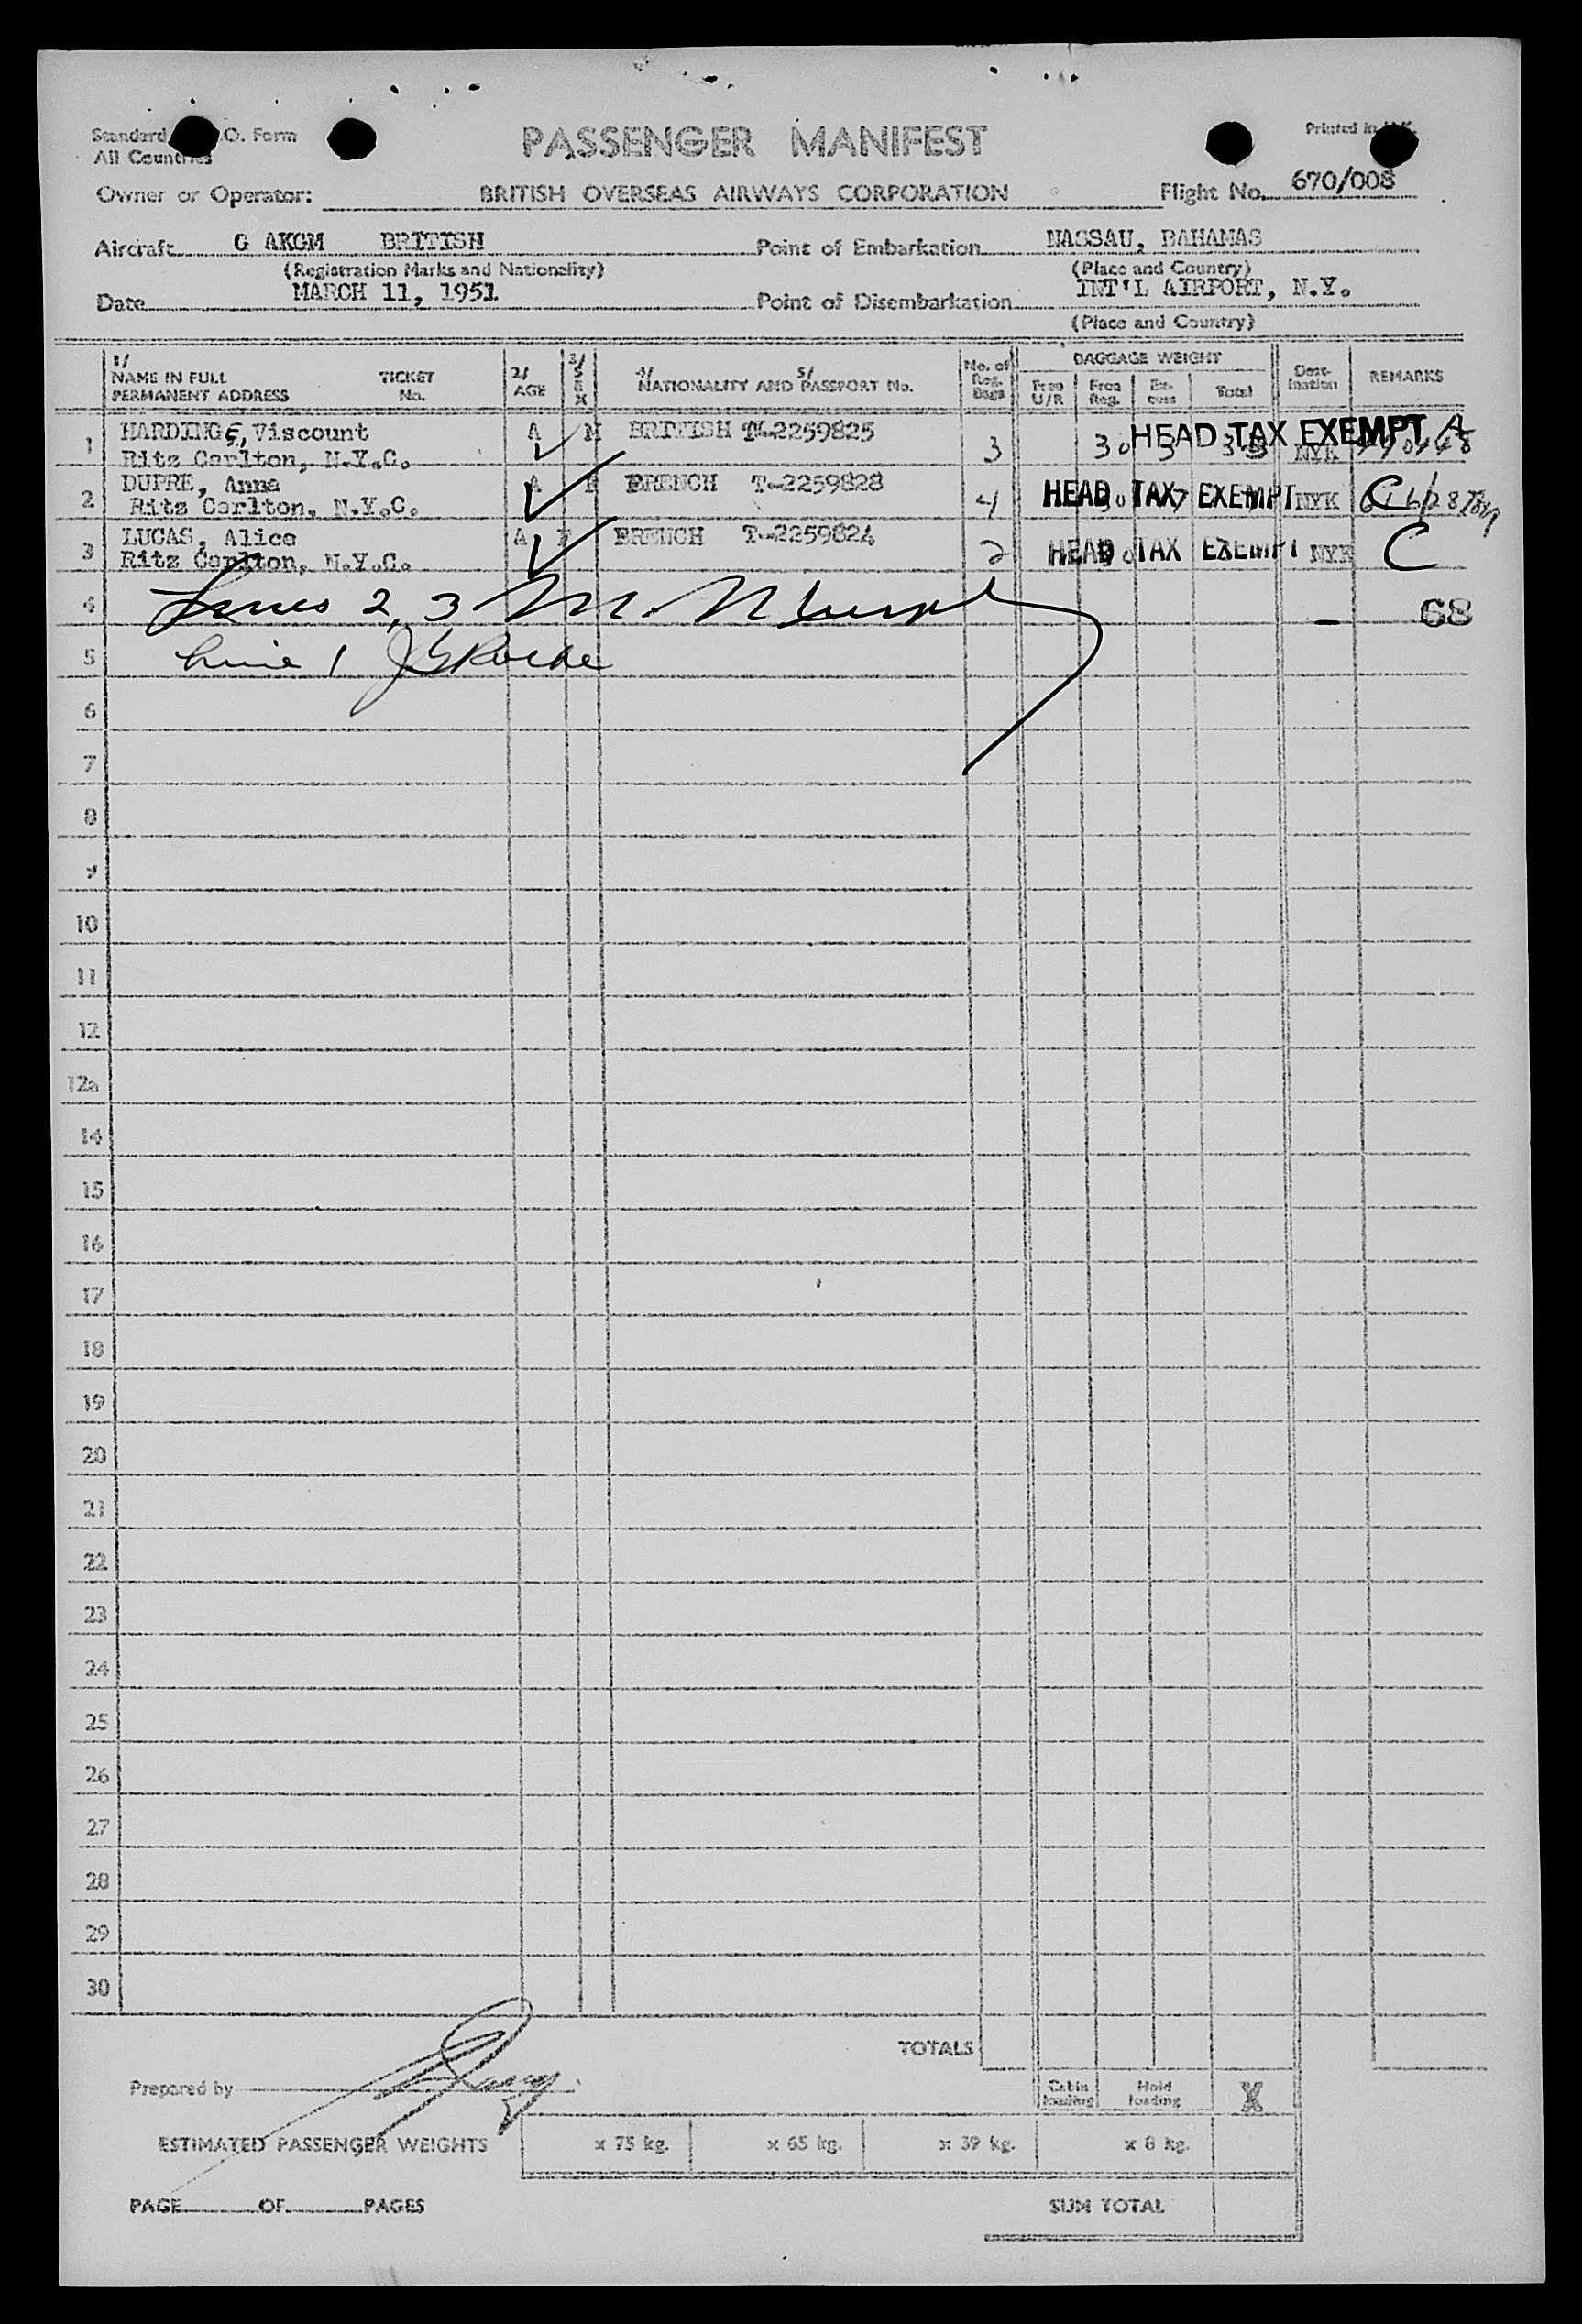 Standard .O. Form
All Countries
PASSENGER MANIFEST
Printed in U.K.
Owner or Operator: BRITISH OVERSEAS AIRWAYS CORPORATION Flight No. 670/008
Aircraft G AKGM BRITISH Point of Embarkation NASSAU, BAHAMAS
(Registration Marks and Nationality) (Place and Country)
Date MARCH 11, 1951 Point of Disembarkation INT'L AIRPORT, N.Y.
(Place and Country)
1/ NAME IN FULL PERMANENT ADDRESS TICKET No. 2/ AGE 3/ SEX 4/ NATIONALITY AND 5/ PASSPORT No. No. of Reg. Bags BAGGAGE WEIGHT Free U/R Free Reg. Ex-cess Total Dest-ination REMARKS
1 HARDINGE, Viscount A M BRITISH 2259825 3 30 3 33 HEAD TAX EXEMPT NYK A
Ritz Carlton, N.Y.C.
2 DUPRE, Anna A F FRENCH T-2259828 4 HEAD TAX EXEMPT NYK C
Ritz Carlton, N.Y.C.
3 LUCAS, Alice A F FRENCH T-2259824 2 HEAD TAX EXEMPT NYK C
Ritz Carlton, N.Y.C.
4 Lines 2, 3 M. Murphy 68
5 Line 1 J G Roche
6
7
8
9
10
11
12
12a
14
15
16
17
18
19
20
21
22
23
24
25
26
27
28
29
30
TOTALS
Prepared by
Cabin loading Hold loading X
ESTIMATED PASSENGER WEIGHTS x 75 kg. x 65 kg. x 39 kg. x 8 kg.
PAGE OF PAGES SUM TOTAL